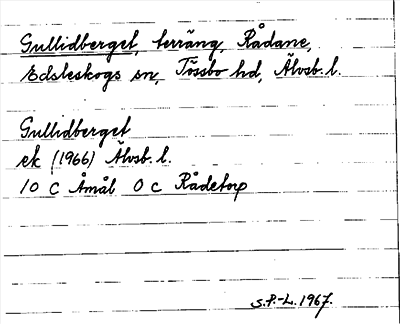 Gullidberget, terräng, Rådane,
Edsleskogs sn, Tössbo hd, Älvsb. l.
Gullidberget
ek (1966) Älvsb. l.
10 C Åmål 0 c Rådetorp
S.P.-L. 1967.